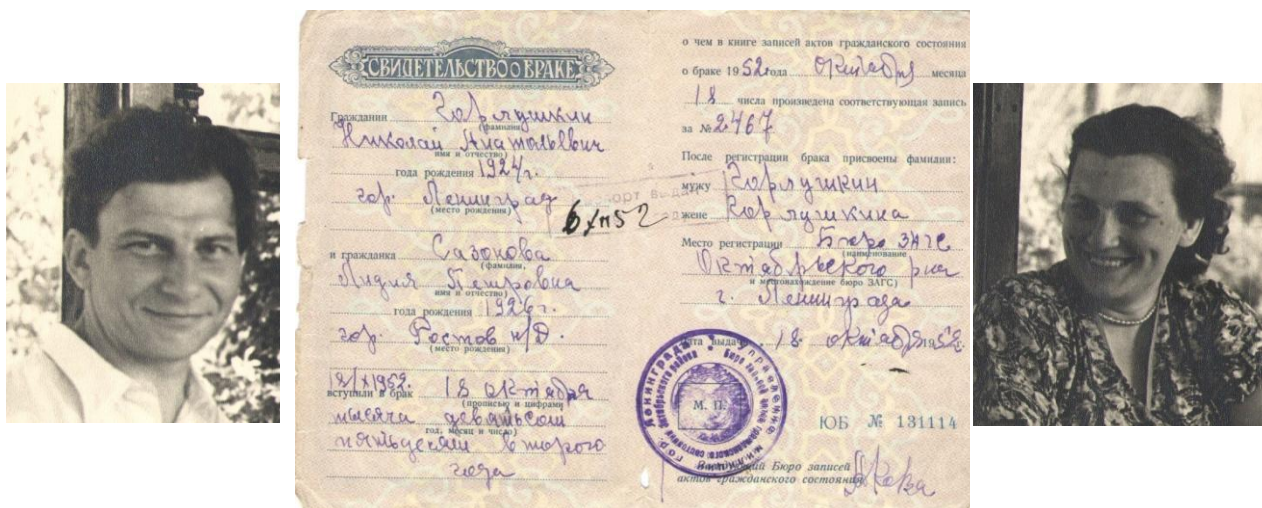 СВИДЕТЕЛЬСТВО о БРАКЕ
Гражданин Горлушкин
(фамилия)
Николай Анатольевич
имя и отчество)
года рождения 1924 г.
гор. Ленинград
(место рождения)
и гражданка Сазонова
(фамилия,
Лидия Петровна
имя и отчество)
года рождения 1926 г.
гор. Ростов н/Д.
(место рождения)
18/X 1952.
вступили в брак 18 октября
(прописью и цифрами
тысяча девятьсот
год, месяц и число)
пятьдесят второго
года
о чем в книге записей актов гражданского состояния
о браке 1952 года октября месяца
18 числа произведена соответствующая запись
за № 2467
После регистрации брака присвоены фамилии:
мужу Горлушкин
жене Горлушкина
Место регистрации Бюро ЗАГС
(наименование
Октябрьского р-на
и местонахождение бюро ЗАГС)
г. Ленинграда
Дата выдачи 18 октября 1952.
М. П.
ЮБ № 131114
Заведующий Бюро записей
актов гражданского состояния